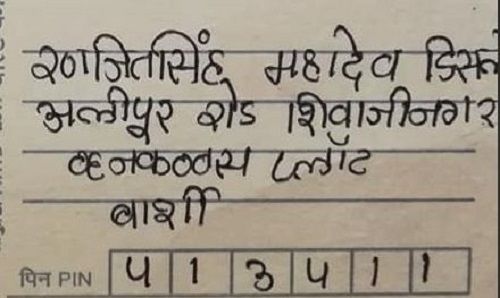 रणजितसिंह महादेव डिसले
अलीपूर रोड शिवाजीनगर
व्हनकळस प्लॉट
बार्शी
पिन PIN 413411